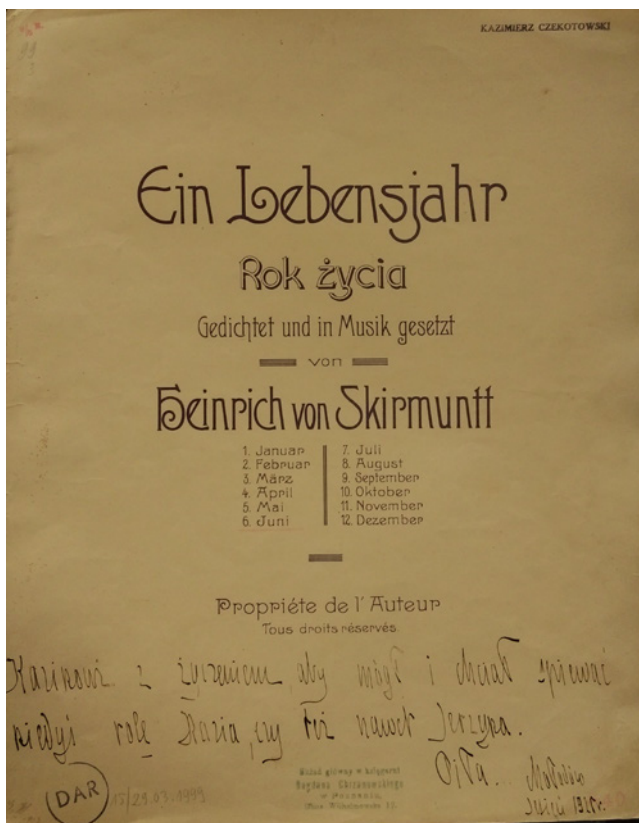 KAZIMIERZ CZEKOTOWSKI
99
3
Ein Lebensjahr
Rok życia
Gedichtet und in Musik gesetzt
von
Heinrich von Skirmuntt
1. Januar
2. Februar
3. März
4. April
5. Mai
6. Juni
7. Juli
8. August
9. September
10. Oktober
11. November
12. Dezember
Propriéte de l'Auteur
Tous droits réservés.
Kazikowi z życzeniem, aby mógł i chciał śpiewać
kiedyś rolę Kazia, czy też nawet Jerzyka.
Mołodów
1925 r.
DAR
15/29.03.1999
Skład główny w księgarni
Bogdana Chrzanowskiego
w Poznaniu